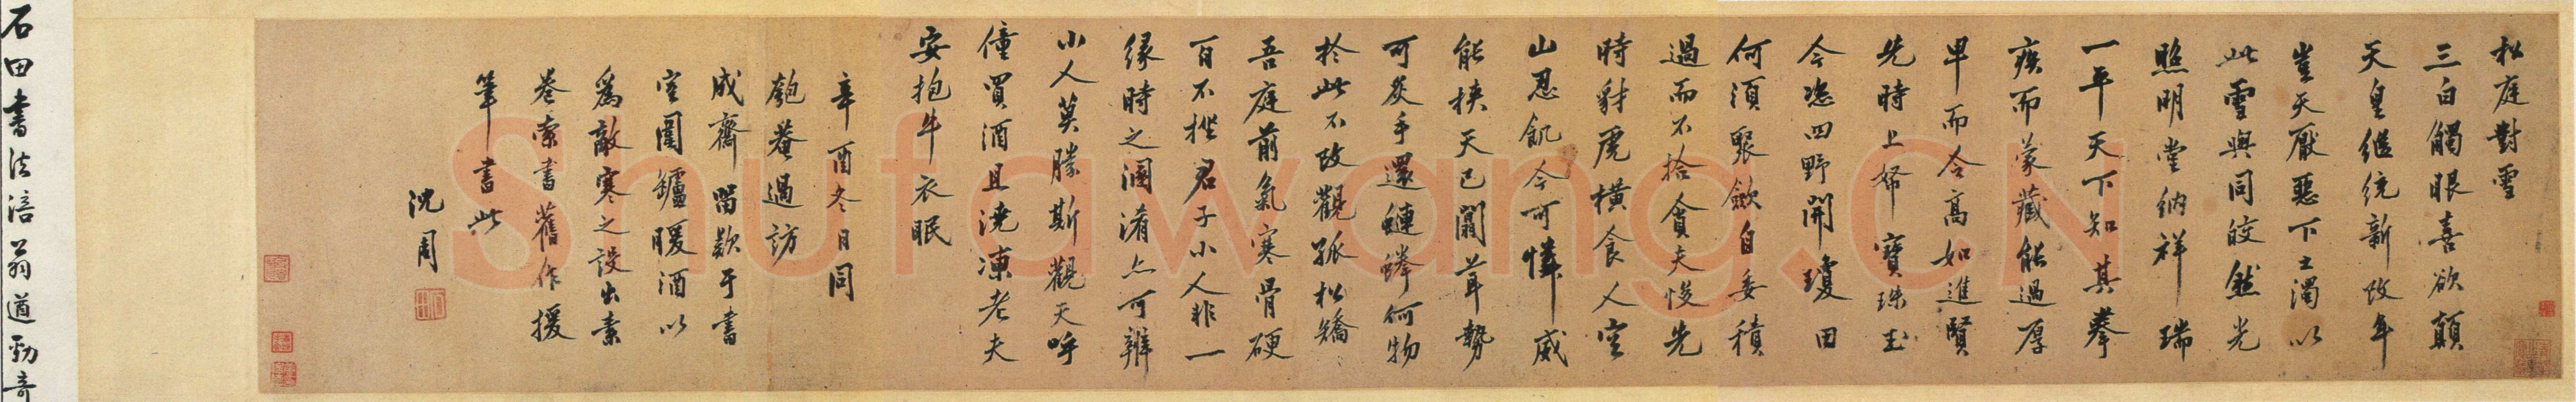 松庭對雪
三白觸眼喜欲顛
天皇繼統新改年
豈天厭惡下土濁以
此雪與同皎然光
照明堂納祥瑞
一平天下知其拳
疾而蒙藏能過厚
卑而令高如進賢
先時上帑寶珠玉
今恣四野開瓊田
何須聚歛自委積
過而不拾貪夫悛先
時豺虎橫食人空
山忍飢今可憐威
能挾天已闒茸勢
可炙手還蜷何物
於此不改觀孤松矯
吾庭前氣寒骨硬
百不摧君子小人非一
緣時之溷淆亦可辨
小人莫勝斯觀天呼
僮買酒且澆凍老夫
安抱牛衣眠
辛酉冬日同
匏菴過訪
成齋留歎于書
室圍鑪暖酒以
爲敵寒之設出素
卷索書舊作援
筆書此
沈周
石田書法涪翁遒勁奇
Shufawang.CN